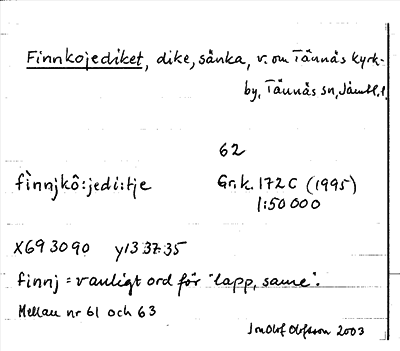 Finnkojediket, dike, sänka, v. om Tännäs kyrk-
by, Tännäs sn, Jämtl. l.
62
fìnnjkô:jedi:tje
Gr.k. 172 C (1995)
1:50 000
X69 30 90 y13 37 35
finnj = vanligt ord för "lapp, same".
Mellan nr 61 och 63
Jon Olof Olofsson 2003